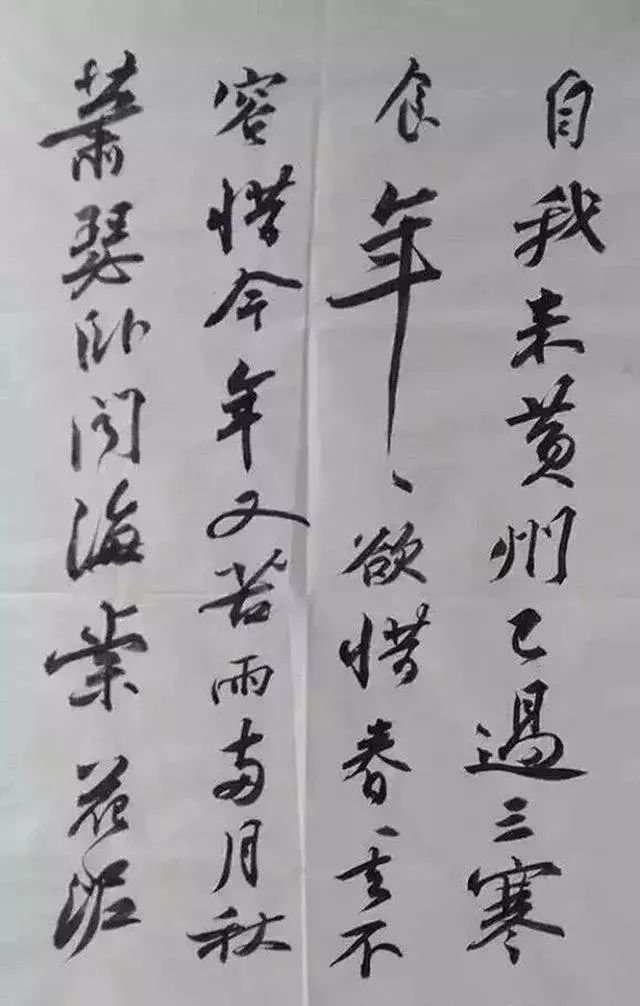 自我来黄州已過三寒
食年、欲惜春、去不
容惜今年又苦雨两月秋
萧瑟卧闻海棠花泥